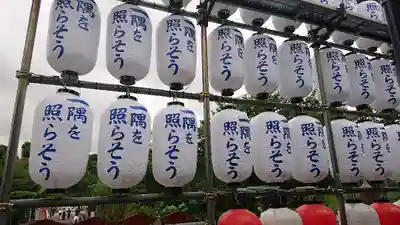 一隅を
照らそう
一隅を
照らそう
一隅を
照らそう
一隅を
照らそう
一隅を
照らそう
一隅を
照らそう
一隅を
照らそう
一隅を
照らそう
一隅を
照らそう
一隅を
照らそう
一隅を
照らそう
一隅を
照らそう
一隅を
照らそう
一隅を
照らそう
一隅を
照らそう
一隅を
照らそう